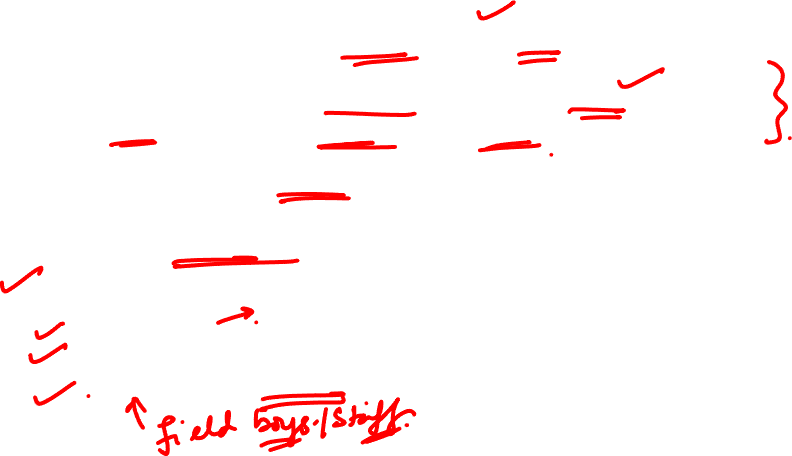 field boys./staff.